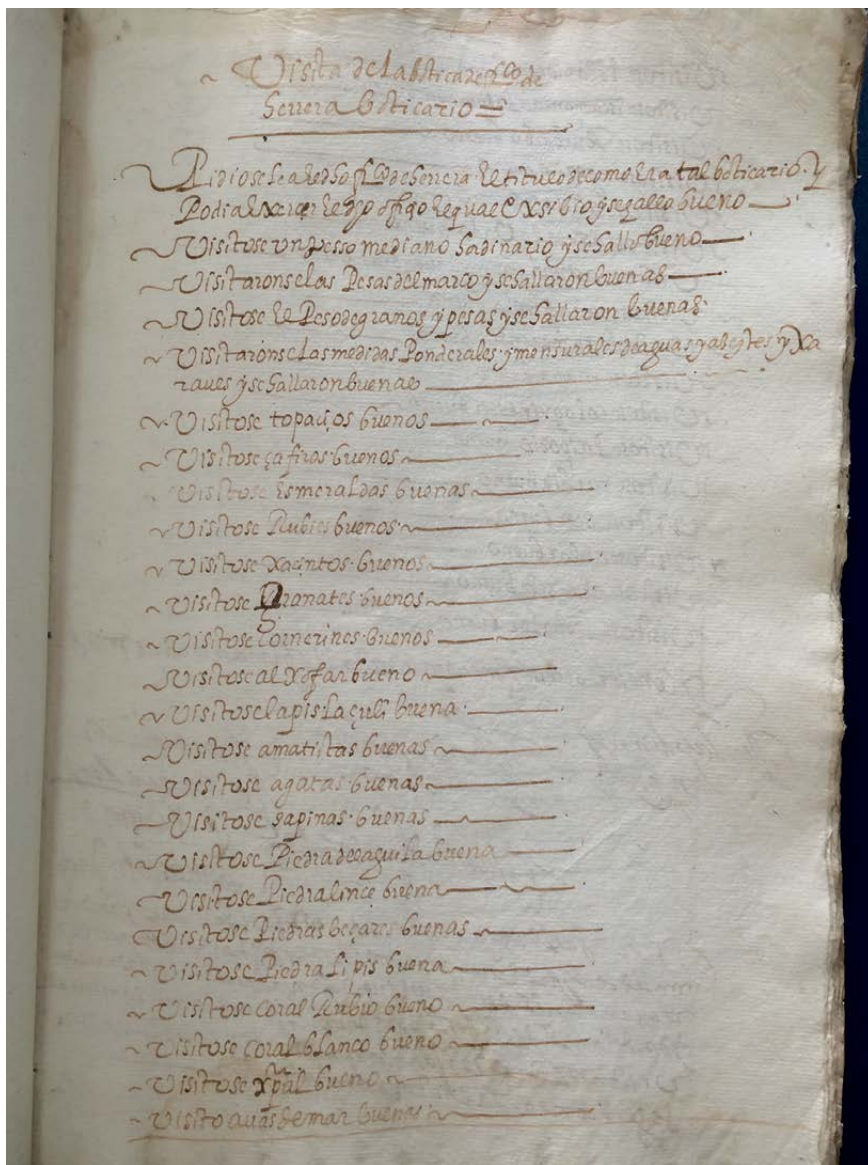 Visita de la botica de fr.co de
herrera boticario =
Pidiosele al dho fr.co de herrera el titulo de como era tal boticario. y
Podia exercer el dho ofiçio el qual Exsibio y se hallo bueno
Visitose un pesso mediano hordinario y se hallo bueno
Visitaronse las Pesas del marco y se hallaron buenas
Visitose el Peso de granos y pesas y se hallaron buenas.
Visitaronse las medidas Ponderales y mensurales de aguas y aseytes y Xa
raves y se hallaron buenas
Visitose topaçios buenos
Visitose çafiros buenos
Visitose Esmeraldas buenas
Visitose Rubies buenos
Visitose Xaçintos buenos
Visitose Granates buenos
Visitose Cornerines buenos
Visitose alXofar bueno
Visitose lapis laçuli buena
Visitose amatistas buenas
Visitose agatas buenas
Visitose buenas
Visitose Piedra de aguila buena
Visitose Piedra lince buena
Visitose Piedras beçares buenas
Visitose Piedra lipis buena
Visitose coral Rubio bueno
Visitose coral blanco bueno
Visitose Xpal bueno
Visito de mar buenas